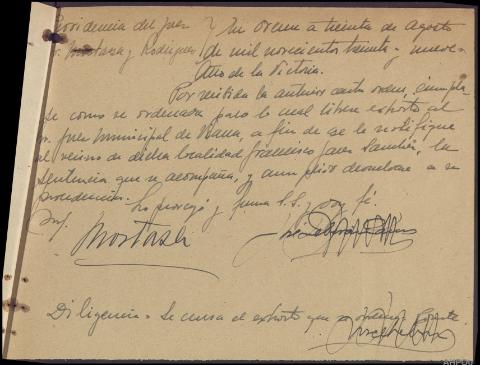 Providencia del Juez } En Orense a treinta de Agosto
Sr. Mostaza y Rodriguez } de mil novecientos treinta y nueve.
Año de la Victoria.
Por recibida la anterior carta orden, cumpla
se como se ordena para lo cual librese exhorto al
Sr. Juez Municipal de Viana, a fin de que se le notifique
al vecino de dicha localidad Francisco, la
sentencia que se acompaña, y cumplido devuelvase a su
procedencia.
Lo proveyó y firma S.S. y doy fé.
Mostaza
Diligencia = Se cursa el exhorto que se ordena